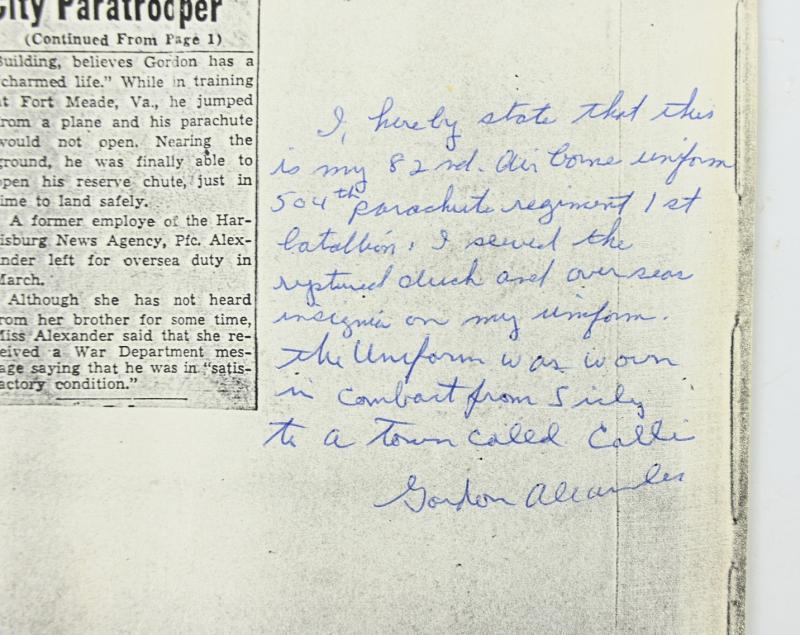 City Paratrooper
(Continued From Page 1)
Building, believes Gordon has a
charmed life." While in training
at Fort Meade, Va., he jumped
from a plane and his parachute
would not open. Nearing the
ground, he was finally able to
open his reserve chute, just in
time to land safely.
A former employe of the Har-
risburg News Agency, Pfc. Alex-
ander left for oversea duty in
March.
Although she has not heard
from her brother for some time,
Miss Alexander said that she re-
ceived a War Department mes-
sage saying that he was in "satis-
factory condition."
I, hereby state that this
is my 82nd. Air borne uniform
504th parachute regiment 1st
batallion. I sewed the
ruptured duck and overseas
insignia on my uniform.
the Uniform was worn
in combart from Sicily
to a town called Calli
Gordon Alexander